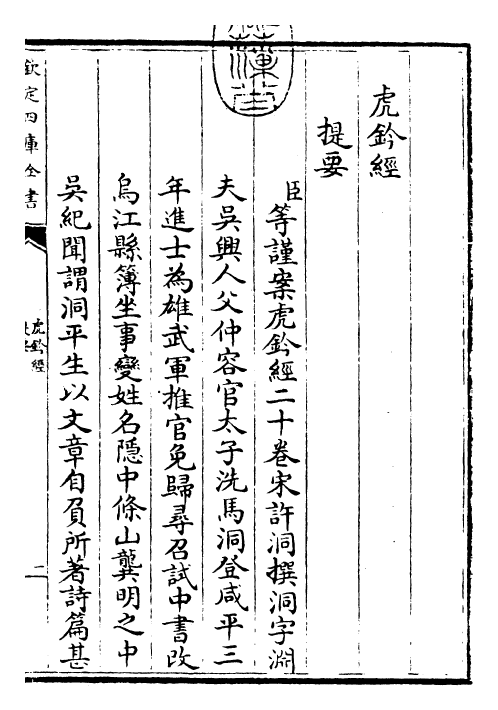 虎鈐經
提要
臣等謹案虎鈐經二十卷宋許洞撰洞字淵
夫吳興人父仲容官太子洗馬洞登咸平三
年進士為雄武軍推官免歸尋召試中書改
烏江縣簿坐事變姓名隱中條山龔明之中
吳紀聞謂洞平生以文章自負所著詩篇甚
欽定四庫全書
虎鈐經
二